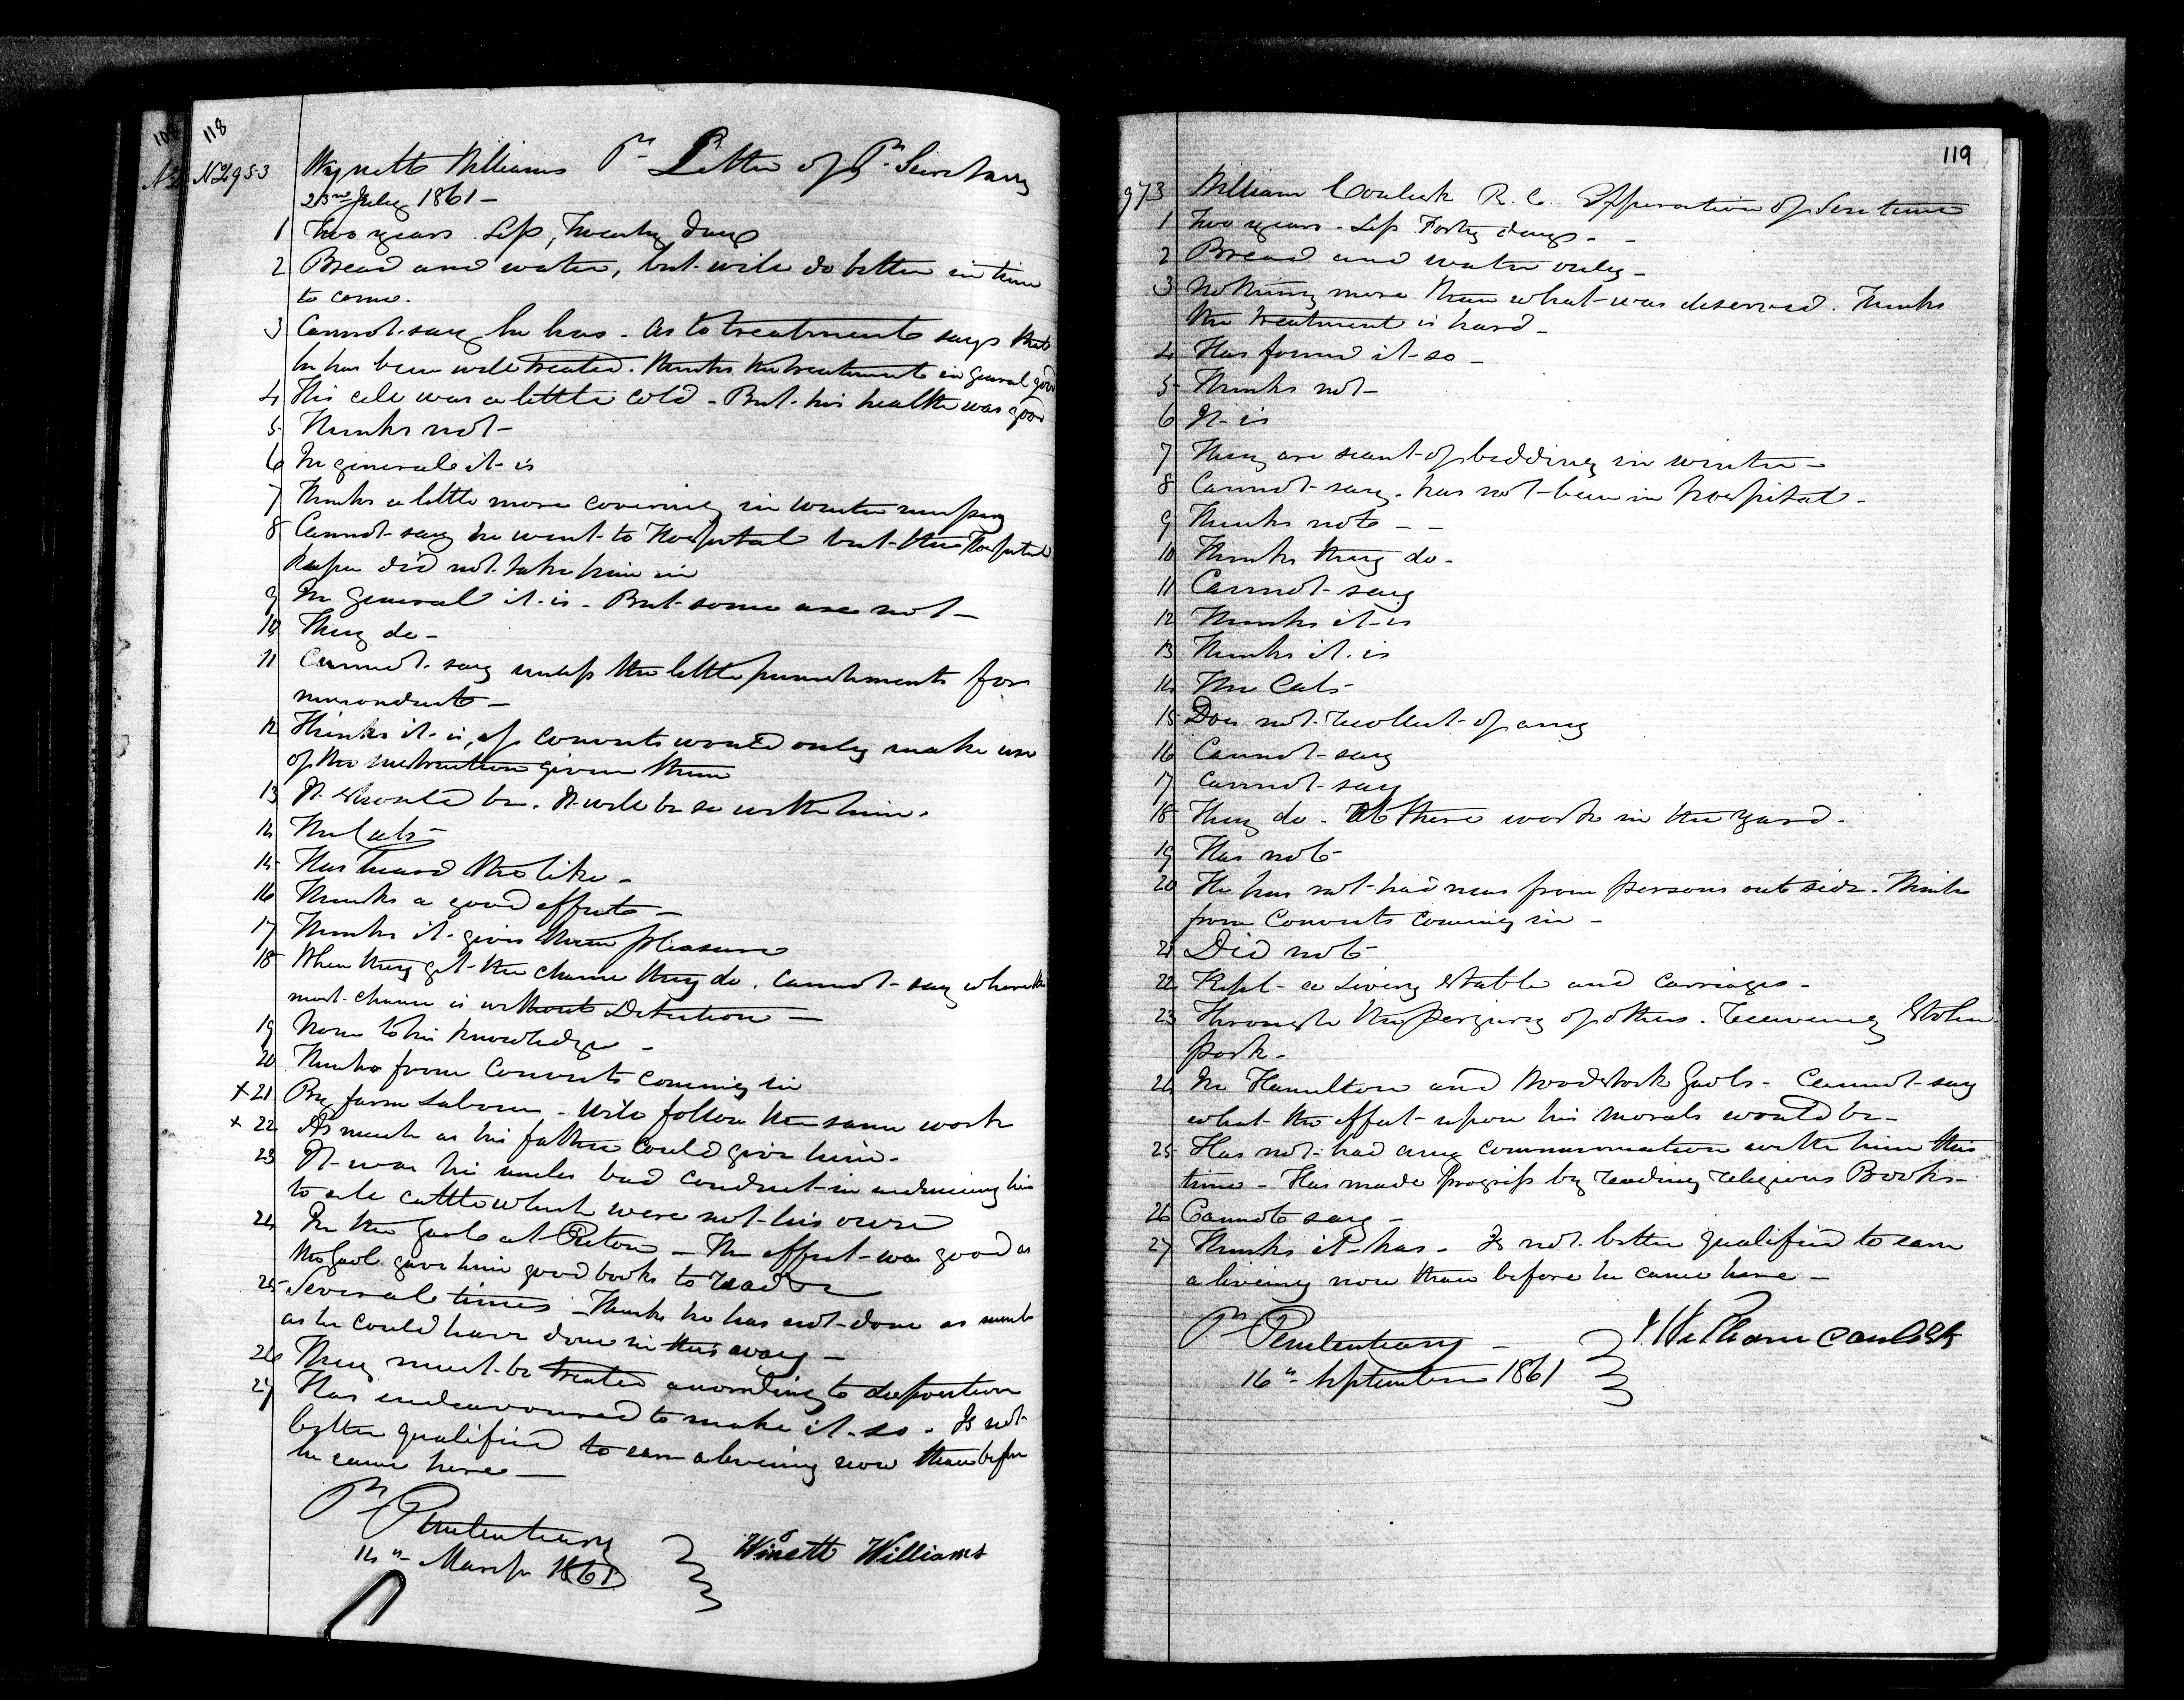 118
No 953 Wynette Williams Pr Letter of P. Secretary
23rd July 1861 –
1 Two years. Less, Twenty days
2 Bread and water, but will do better in time
to come.
3 Cannot say he has. As to treatment says that
he has been well treated. thinks the treatment in general good
4 His cell was a little cold – But his health was good
5 Thinks not –
6 In general it is
7 Thinks a little more covering in winter
8 Cannot say he went to Hospital but the Hospital
Keeper did not take him in
9 In general it is – But some are not –
10 They do –
11 Cannot say unless the little punishments for
misconduct –
12 Thinks it is, if convicts would only make use
of the instruction given them
13 It should be. It will be so with him.
14 The Cats
15 Has heard the like –
16 Thinks a good effect –
17 Thinks it gives them pleasure
18 When they get the chance they do. Cannot say where the
most chance is without Detection –
19 None to his knowledge –
20 Thinks from Convicts coming in
x 21 By farm Labour – Will follow the same work
x 22 As much as his father could give him.
23 It was his uncles bad conduct in inducing him
to sell cattle which were not his own
24 In the Gaol at Picton – The effect was good as
the Gaol gave him good books to read
25 Several times – Thinks he has not done as much
as he could have done in this way –
26 They must be treated according to disposition
27 Has endeavoured to make it so. Is not
better qualified to earn a living now than before
he came here –
Pr Penitentiary
14th March 1861
Winett Williams
119
973 William Coulick R. C. Expiration of Sentence
1 Two years. Less Forty days –
2 Bread and water only –
3 Nothing more than what was deserved. Thinks
the treatment is hard –
4 Has found it so –
5 Thinks not –
6 It is
7 They are scant of bedding in winter –
8 Cannot say. has not been in hospital –
9 Thinks not – –
10 Thinks they do –
11 Cannot say
12 Thinks it is
13 Thinks it is
14 The Cats
15 Does not recollect of any
16 Cannot say
17 Cannot say
18 They do – At there work in the yard.
19 Has not
20 He has not had news from persons outside. Thinks
from Convicts coming in –
21 Did not
22 Kept a Livery Stable and Carriages –
23 Through the perjury of others. Receiving Stolen
pork –
24 In Hamilton and Woodstock Gaols – Cannot say
what the effect upon his morals would be –
25 Has not had any communication with him this
time – Has made progress by reading religious Books –
26 Cannot say –
27 Thinks it has. Is not better qualified to earn
a living now than before he came here –
Pr Penitentiary –
16th September 1861
William Coulick